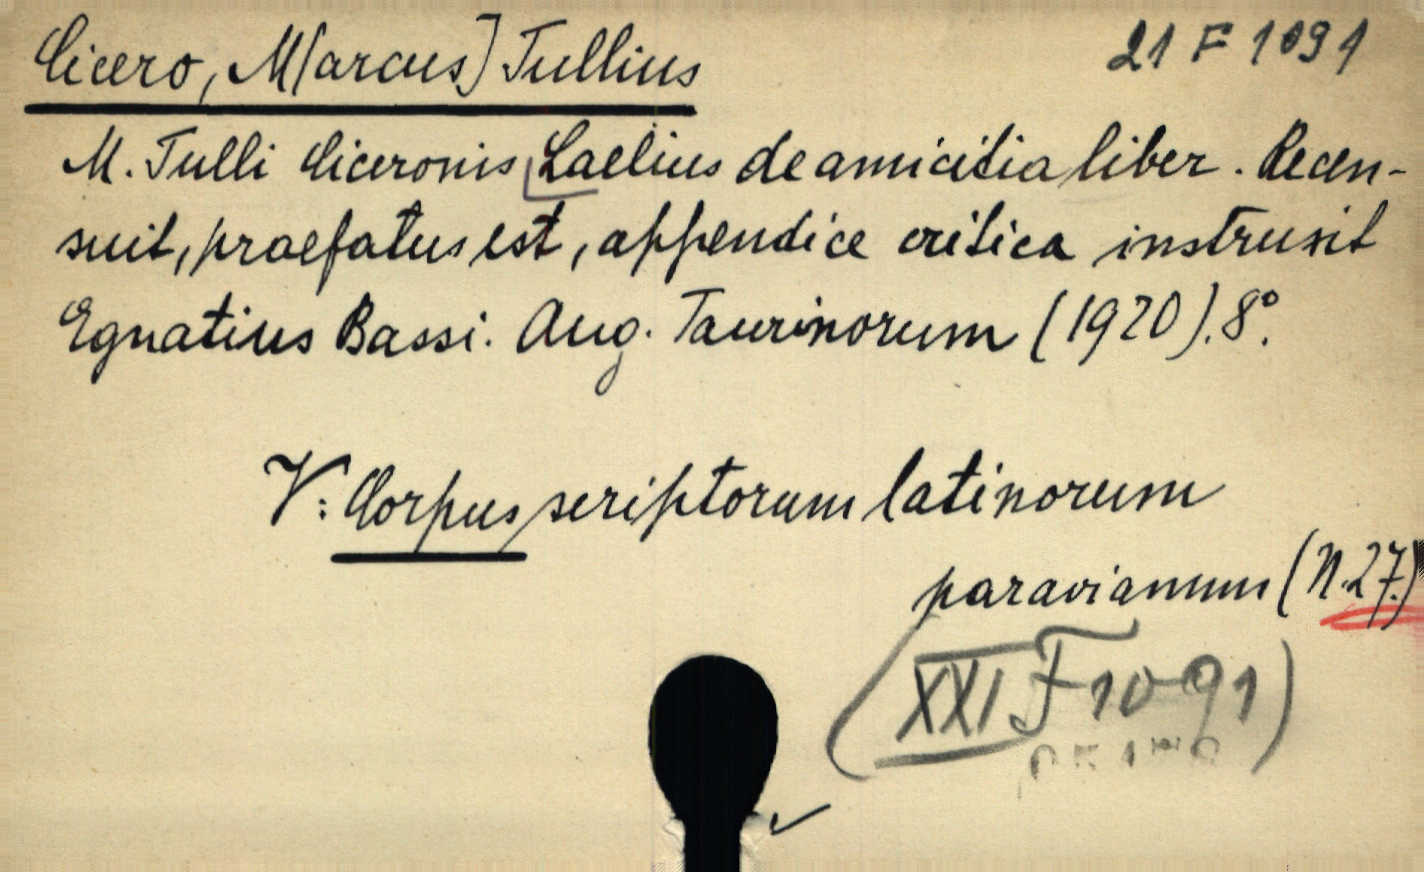 Cicero, M[arcus] Tullius
21 F 1091
M. Tulli Ciceronis Laelius de amicitia liber. Recen-
suit, praefatus est, appendice critica instruxit
Egnatius Bassi. Aug. Taurinorum (1920). 8°.
V: Corpus scriptorum latinorum
paravianum (N. 27.)
(XXI F 1091)